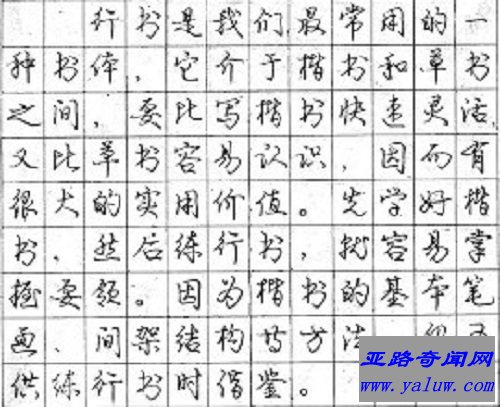 行书是我们最常用的一
种书体,它介于楷书和草书
之间,要比写楷书快速灵活,
又比草书容易认识,因而有
很大的实用价值。先学好楷
书,然后练行书,就容易掌
握要领。因为楷书的基本笔
画、间架结构等方法
供练行书时借鉴。
亚路奇闻网
www.yaluw.com